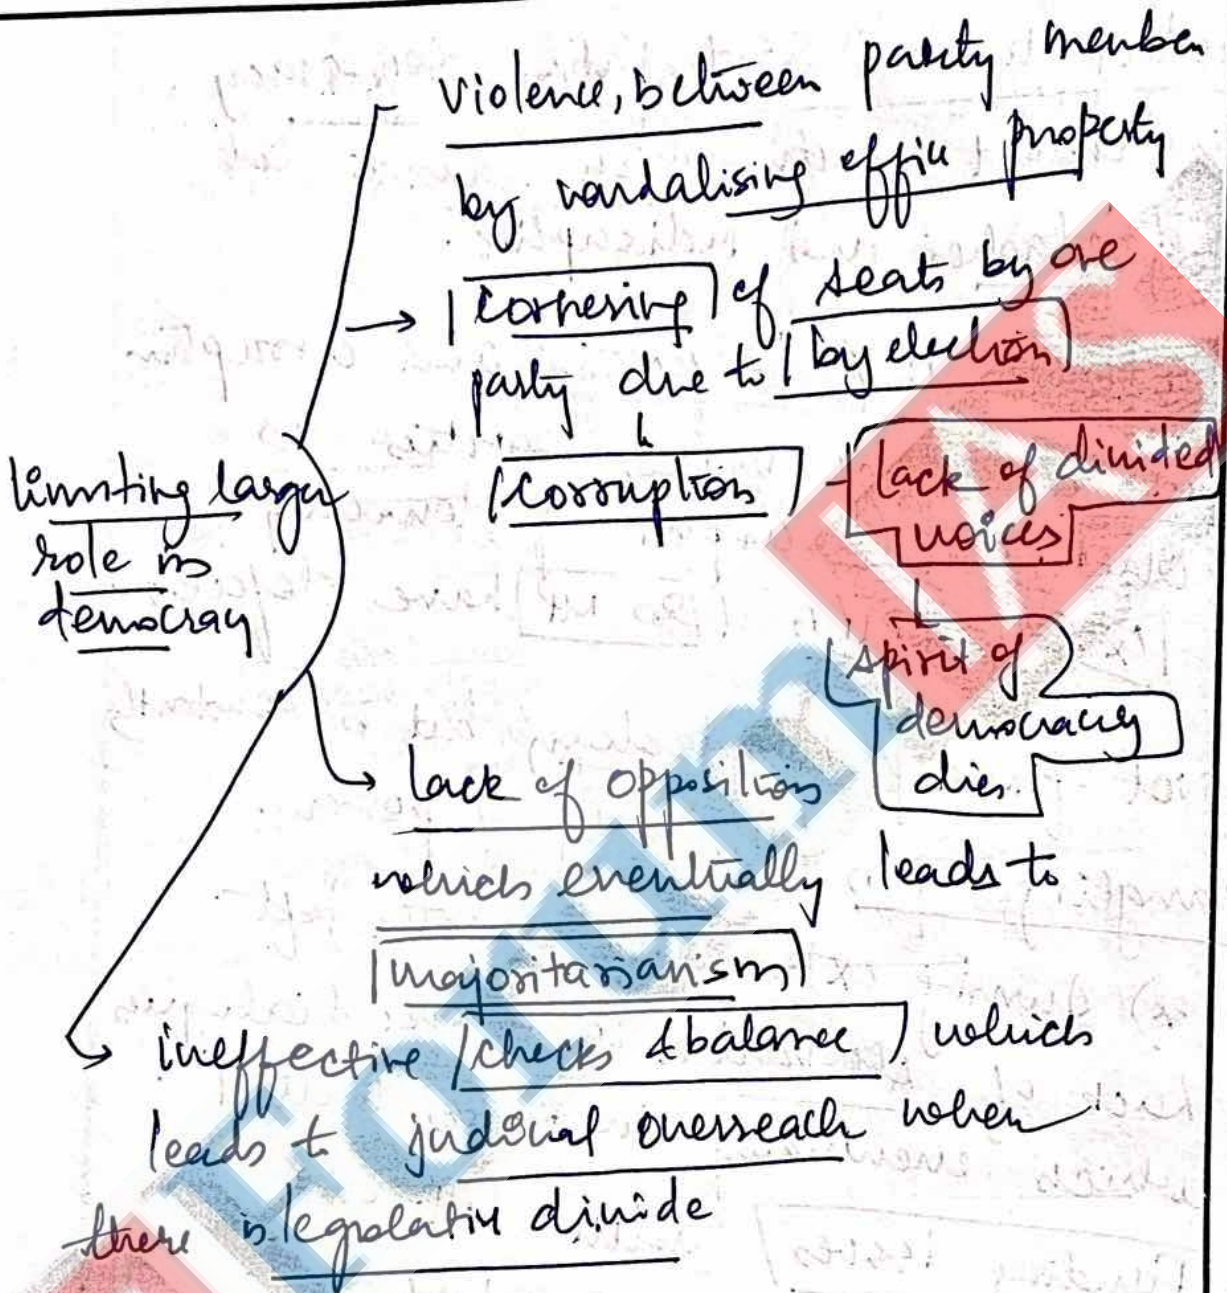 violence, between party member
by vandalising office property
cornering of seats by one
party due to by election
corruption - lack of divided
voices
spirit of
democracy
dies.
limiting larger
role in
democracy
lack of opposition
which eventually leads to
majoritarianism
ineffective checks & balance which
leads to judicial overreach when
there is legislative divide
Forum IAS